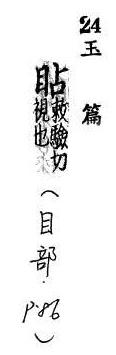 24 玉篇
䀡敕驗切
視也
（目部．P.86）